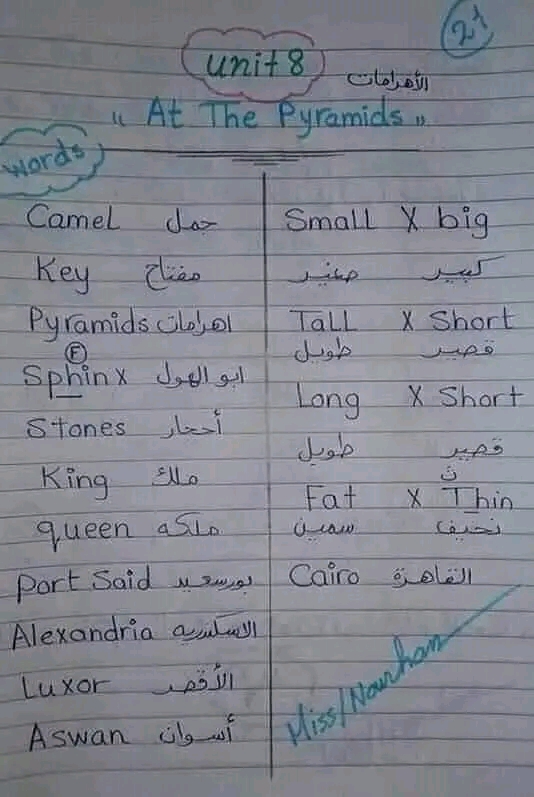 21
unit 8
الأهرامات
" At The Pyramids "
words
Camel جمل
Key مفتاح
Pyramids اهرامات
F
Sphinx ابو الهول
Stones أحجار
King ملك
queen ملكه
port Said بورسعيد
Alexandria الاسكندريه
Luxor الأقصر
Aswan أسوان
Small X big
صغير كبير
Tall X Short
طويل قصير
Long X Short
طويل قصير
ث
Fat X Thin
سمين نحيف
Cairo القاهرة
Miss/Nourhan